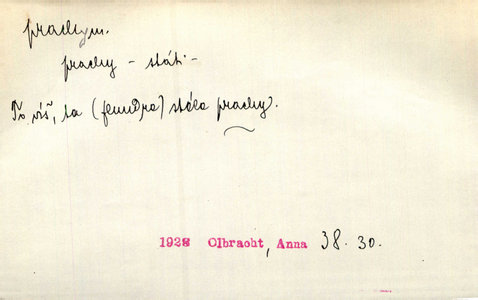 prachy m.
prachy - státi -
To víš, ta (flundra) stála prachy.
1928 Olbracht, Anna 38. 30.